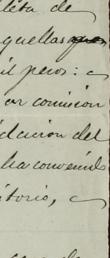 lita de
quellas
il pesos:
or comision
idacion del
ha convenido
itorio,